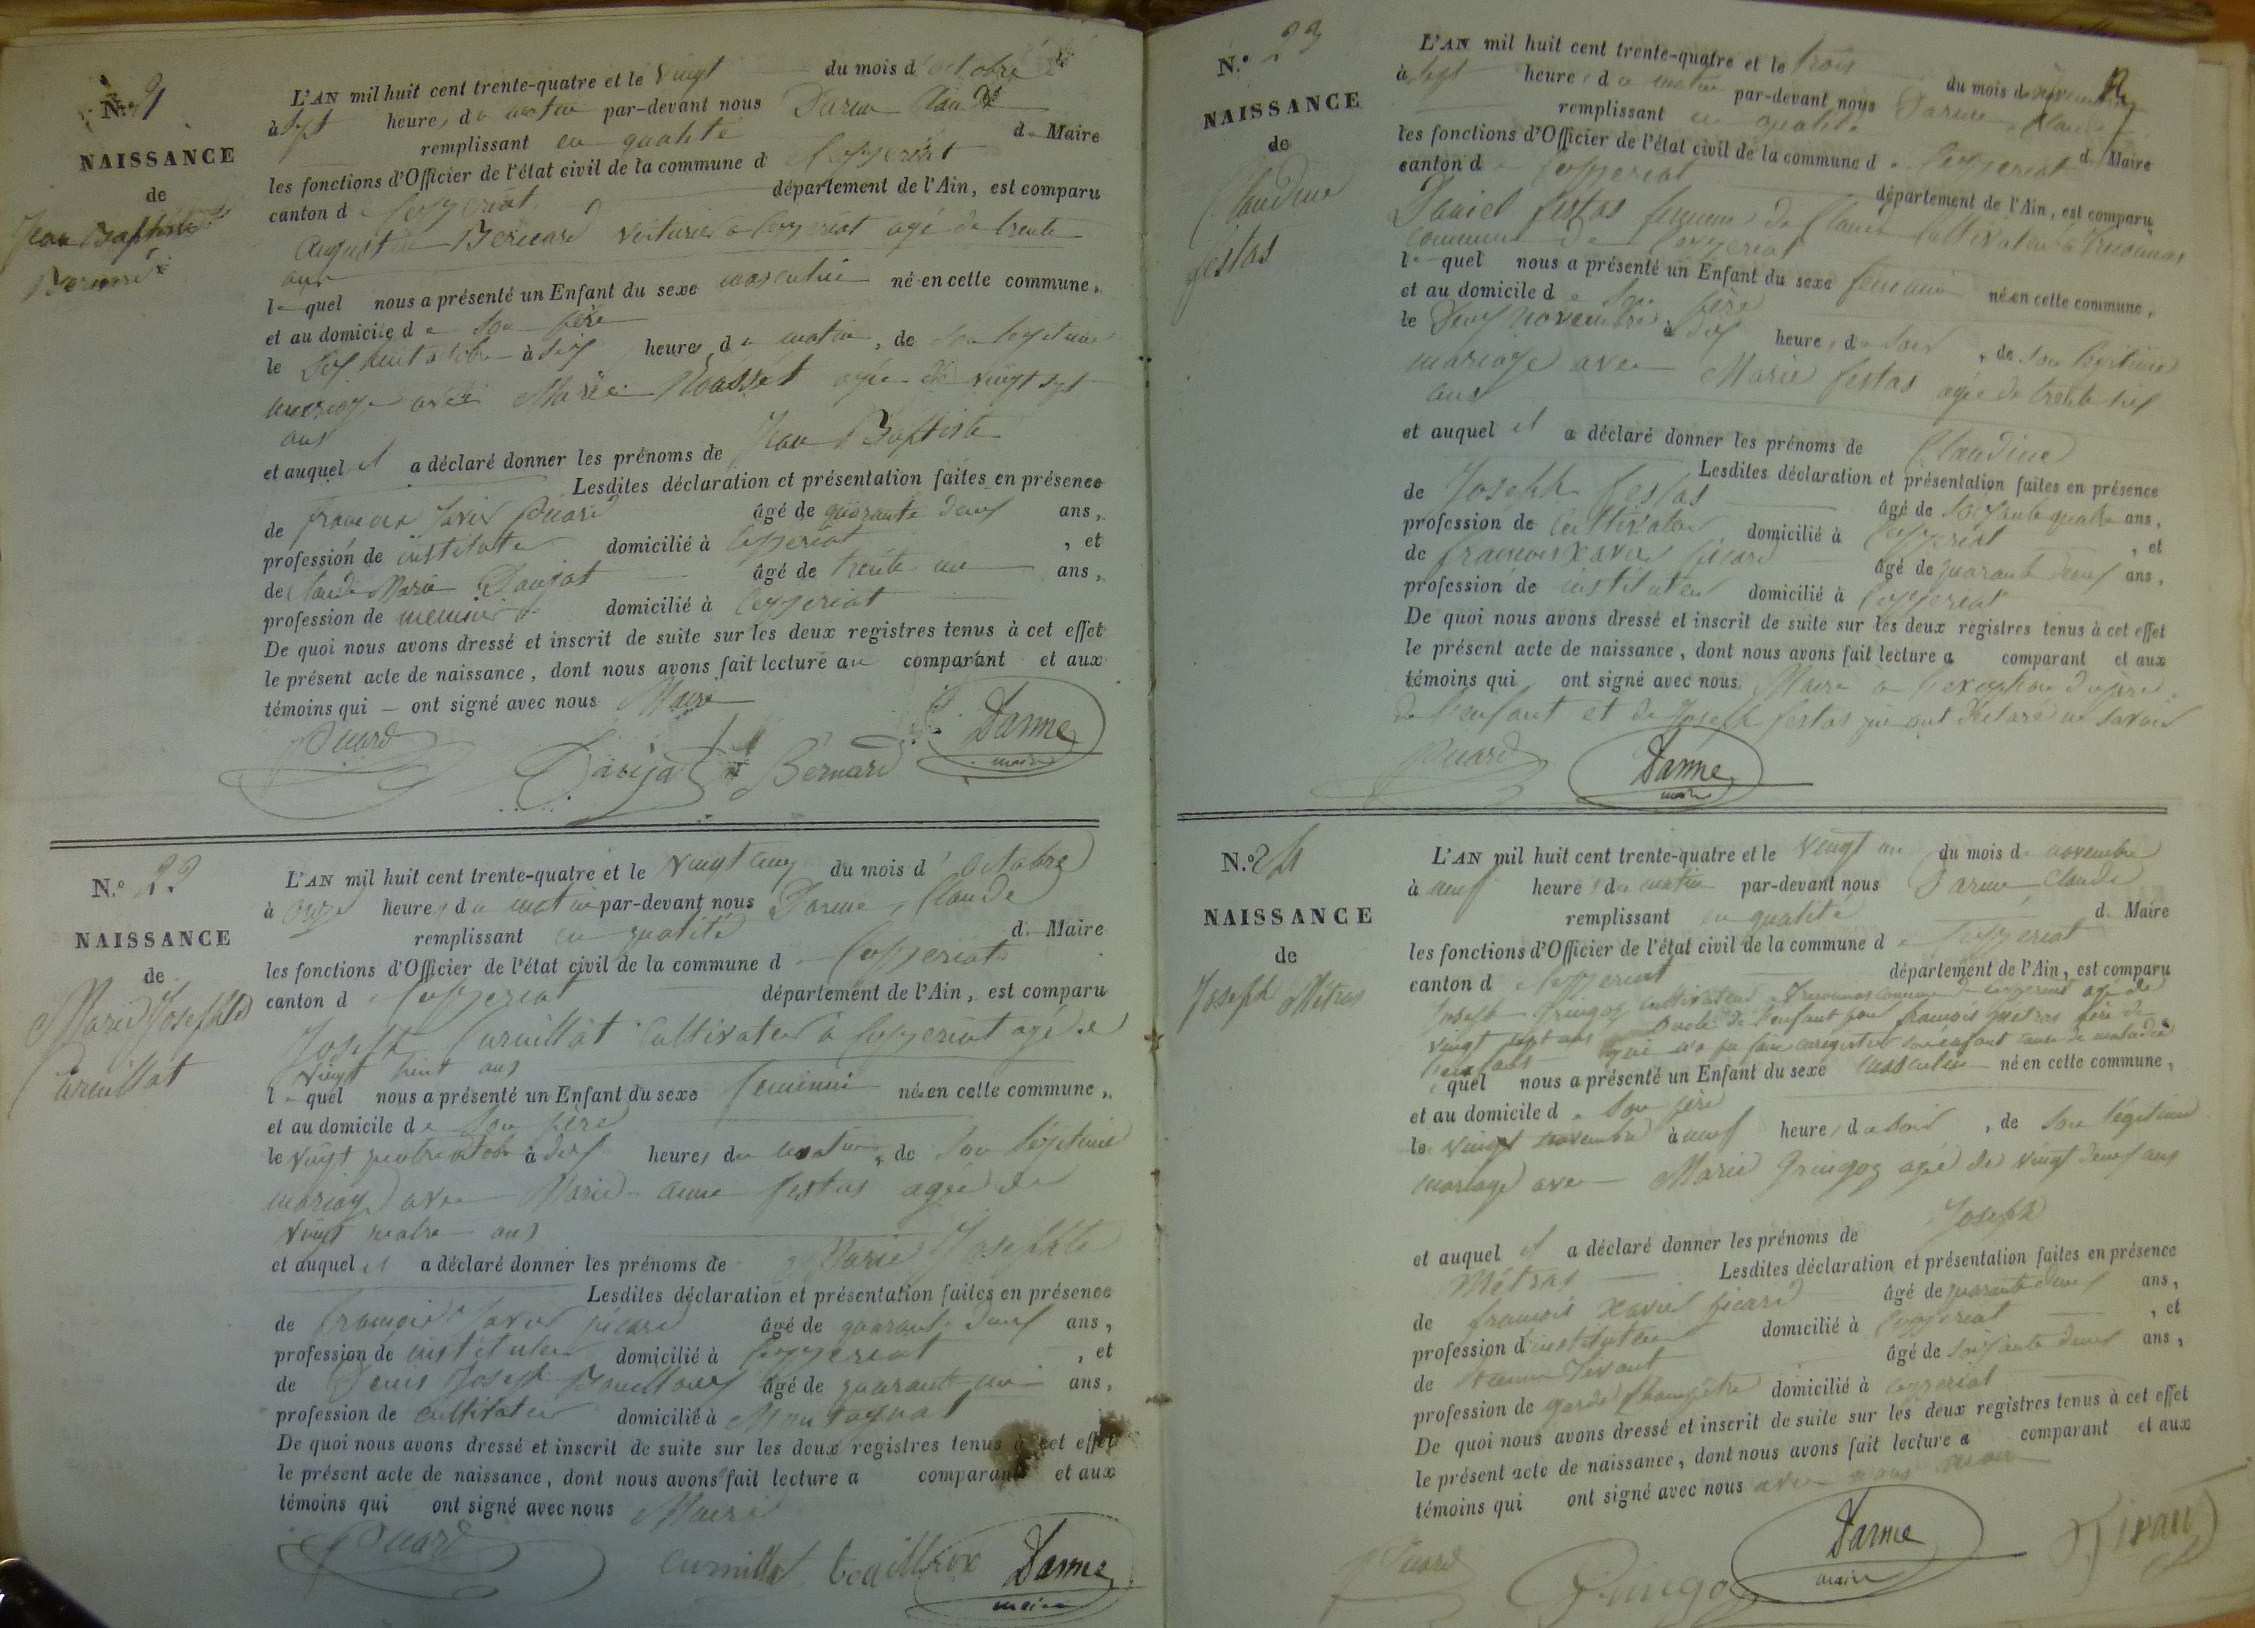 N.° 21
NAISSANCE
de
Jean Baptiste
Bernard
L'AN mil huit cent trente-quatre et le vingt du mois d'octobre
à sept heures du matin par-devant nous Darme Claude
remplissant en qualité de Maire
les fonctions d'Officier de l'état civil de la commune de Ceyzeriat
canton de Ceyzeriat département de l'Ain, est comparu
Augustin Bernard voiturier à Ceyzeriat agé de trente
ans
lequel nous a présenté un Enfant du sexe masculin né en cette commune,
et au domicile de son père
le dix huit octobre à dix heures du matin, de son legitime
mariage avec Marie Rousset agée de vingt sept
ans
et auquel il a déclaré donner les prénoms de Jean Baptiste
Lesdites déclaration et présentation faites en présence
de françois Xavier Picard âgé de quarante deux ans,
profession de instituteur domicilié à Ceyzeriat, et
de Claude Marie Danjat âgé de trente un ans,
profession de domicilié à Ceyzeriat
De quoi nous avons dressé et inscrit de suite sur les deux registres tenus à cet effet
le présent acte de naissance, dont nous avons fait lecture au comparant et aux
témoins qui ont signé avec nous Maire
Picard
Bernard
Darme
maire
N.° 22
NAISSANCE
de
Marie Josephte
Curnillat
L'AN mil huit cent trente-quatre et le vingt cinq du mois d'octobre
à onze heures du matin par-devant nous Darme Claude
remplissant en qualité de Maire
les fonctions d'Officier de l'état civil de la commune de Ceyzeriat
canton de Ceyzeriat département de l'Ain, est comparu
Joseph Curnillat Cultivateur à Ceyzeriat agé de
vingt huit ans
lequel nous a présenté un Enfant du sexe feminin née en cette commune,
et au domicile de son père
le vingt quatre octobre à dix heures du matin, de son légitime
mariage avec Marie anne festas agée de
vingt quatre ans
et auquel il a déclaré donner les prénoms de Marie Josephte
Lesdites déclaration et présentation faites en présence
de françois Xavier picard âgé de quarante deux ans,
profession de instituteur domicilié à Ceyzeriat, et
de Denis Joseph Bouilloux âgé de quarante un ans,
profession de cultivateur domicilié à Montagnat
De quoi nous avons dressé et inscrit de suite sur les deux registres tenus à cet effet
le présent acte de naissance, dont nous avons fait lecture a comparant et aux
témoins qui ont signé avec nous Maire
Picard
curnillat
Darme
maire
N.° 23
NAISSANCE
de
Claudine
festas
L'AN mil huit cent trente-quatre et le trois du mois de novembre
à sept heures du matin par-devant nous Darme Claude
remplissant en qualité de Maire
les fonctions d'Officier de l'état civil de la commune de Ceyzeriat
canton de Ceyzeriat département de l'Ain, est comparu
Daniel festas Cultivateur à
commune de Ceyzeriat
lequel nous a présenté un Enfant du sexe feminin née en cette commune,
et au domicile de son père
le deux novembre à dix heures du soir, de son légitime
mariage avec Marie festas agée de trente six
ans
et auquel il a déclaré donner les prénoms de Claudine
Lesdites déclaration et présentation faites en présence
de Joseph festas âgé de soixante quatre ans,
profession de Cultivateur domicilié à Ceyzeriat, et
de françois Xavier picard âgé de quarante deux ans,
profession de instituteur domicilié à Ceyzeriat
De quoi nous avons dressé et inscrit de suite sur les deux registres tenus à cet effet
le présent acte de naissance, dont nous avons fait lecture a comparant et aux
témoins qui ont signé avec nous Maire a l'exception du père
de l'enfant et de Joseph festas qui ont déclaré ne savoir
Picard
Darme
maire
N.° 24
NAISSANCE
de
Joseph Métras
L'AN mil huit cent trente-quatre et le vingt un du mois de novembre
à neuf heures du matin par-devant nous Darme Claude
remplissant en qualité de Maire
les fonctions d'Officier de l'état civil de la commune de Ceyzeriat
canton de Ceyzeriat département de l'Ain, est comparu
Joseph Gringoz cultivateur à commune de ceyzeriat agé de
vingt sept ans oncle de l'enfant pour françois Métras père de
l'enfant qui n'a pu faire enregistrer son enfant cause de maladie
lequel nous a présenté un Enfant du sexe masculin né en cette commune,
et au domicile de son père
le vingt novembre à neuf heures du soir, de son légitime
mariage avec Marie Gringoz agée de vingt deux ans
et auquel il a déclaré donner les prénoms de Joseph
Métras Lesdites déclaration et présentation faites en présence
de françois Xavier picard âgé de quarante deux ans,
profession d'instituteur domicilié à Ceyzeriat, et
de âgé de soixante deux ans,
profession de garde champêtre domicilié à ceyzeriat
De quoi nous avons dressé et inscrit de suite sur les deux registres tenus à cet effet
le présent acte de naissance, dont nous avons fait lecture a comparant et aux
témoins qui ont signé avec nous avec nous maire
Picard
Gringoz
Darme
maire